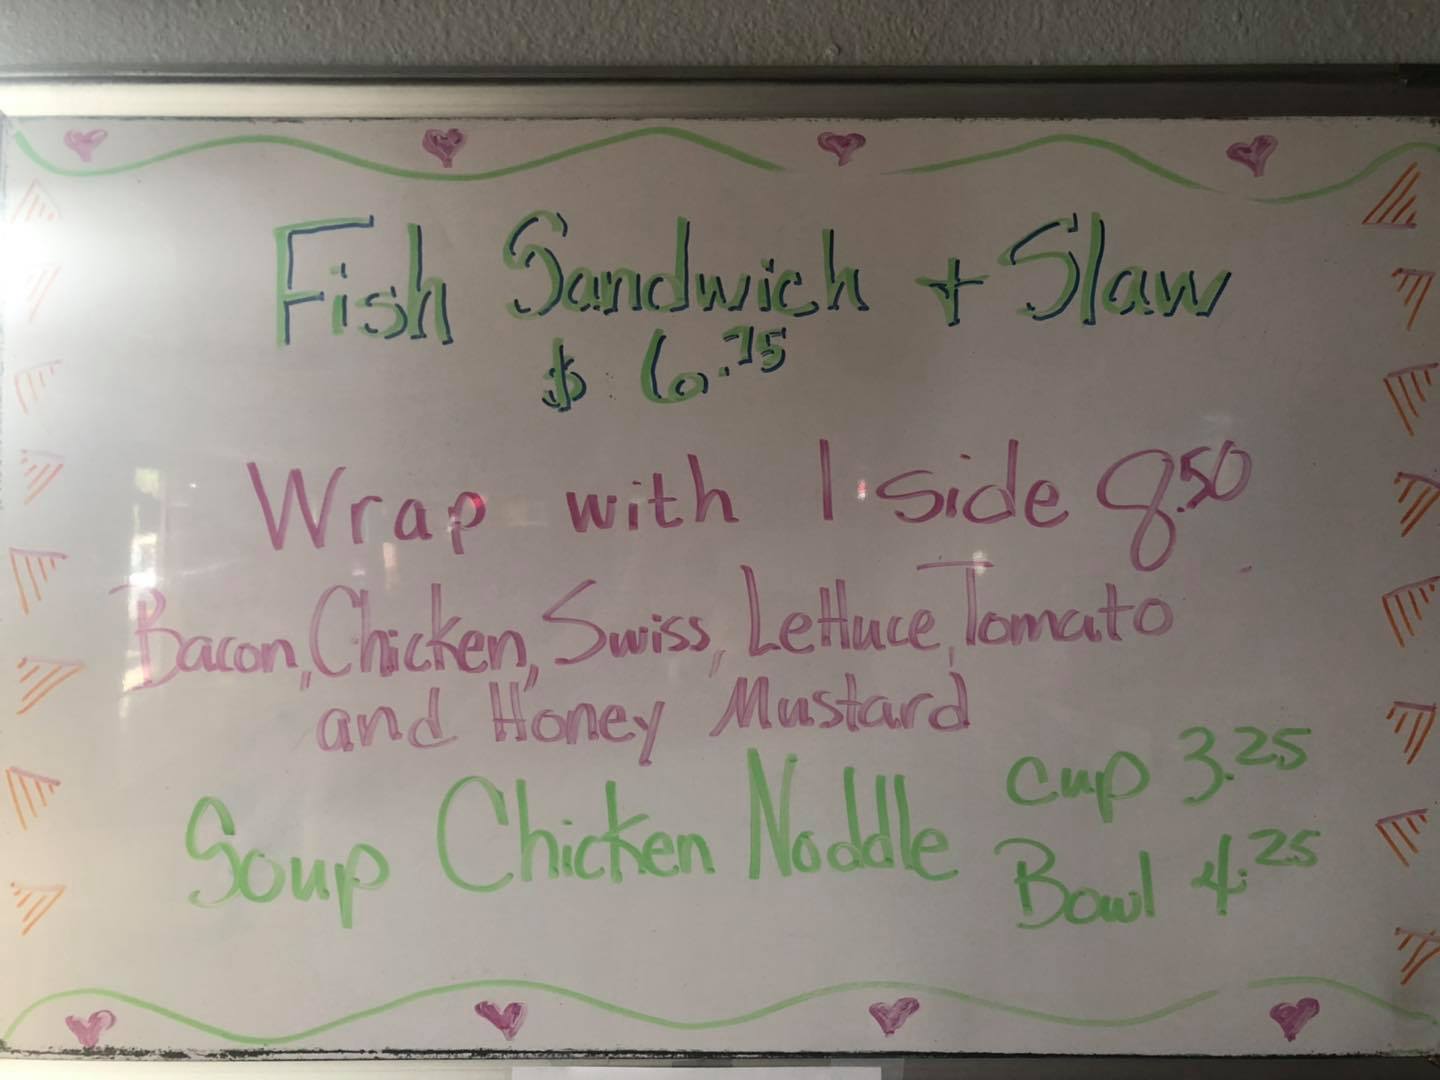 Fish Sandwich + Slaw
$ 6.75
Wrap with 1 side 8.50
Bacon, Chicken, Swiss, Lettuce, Tomato
and Honey Mustard
Soup Chicken Noddle cup 3.25
Bowl 4.25